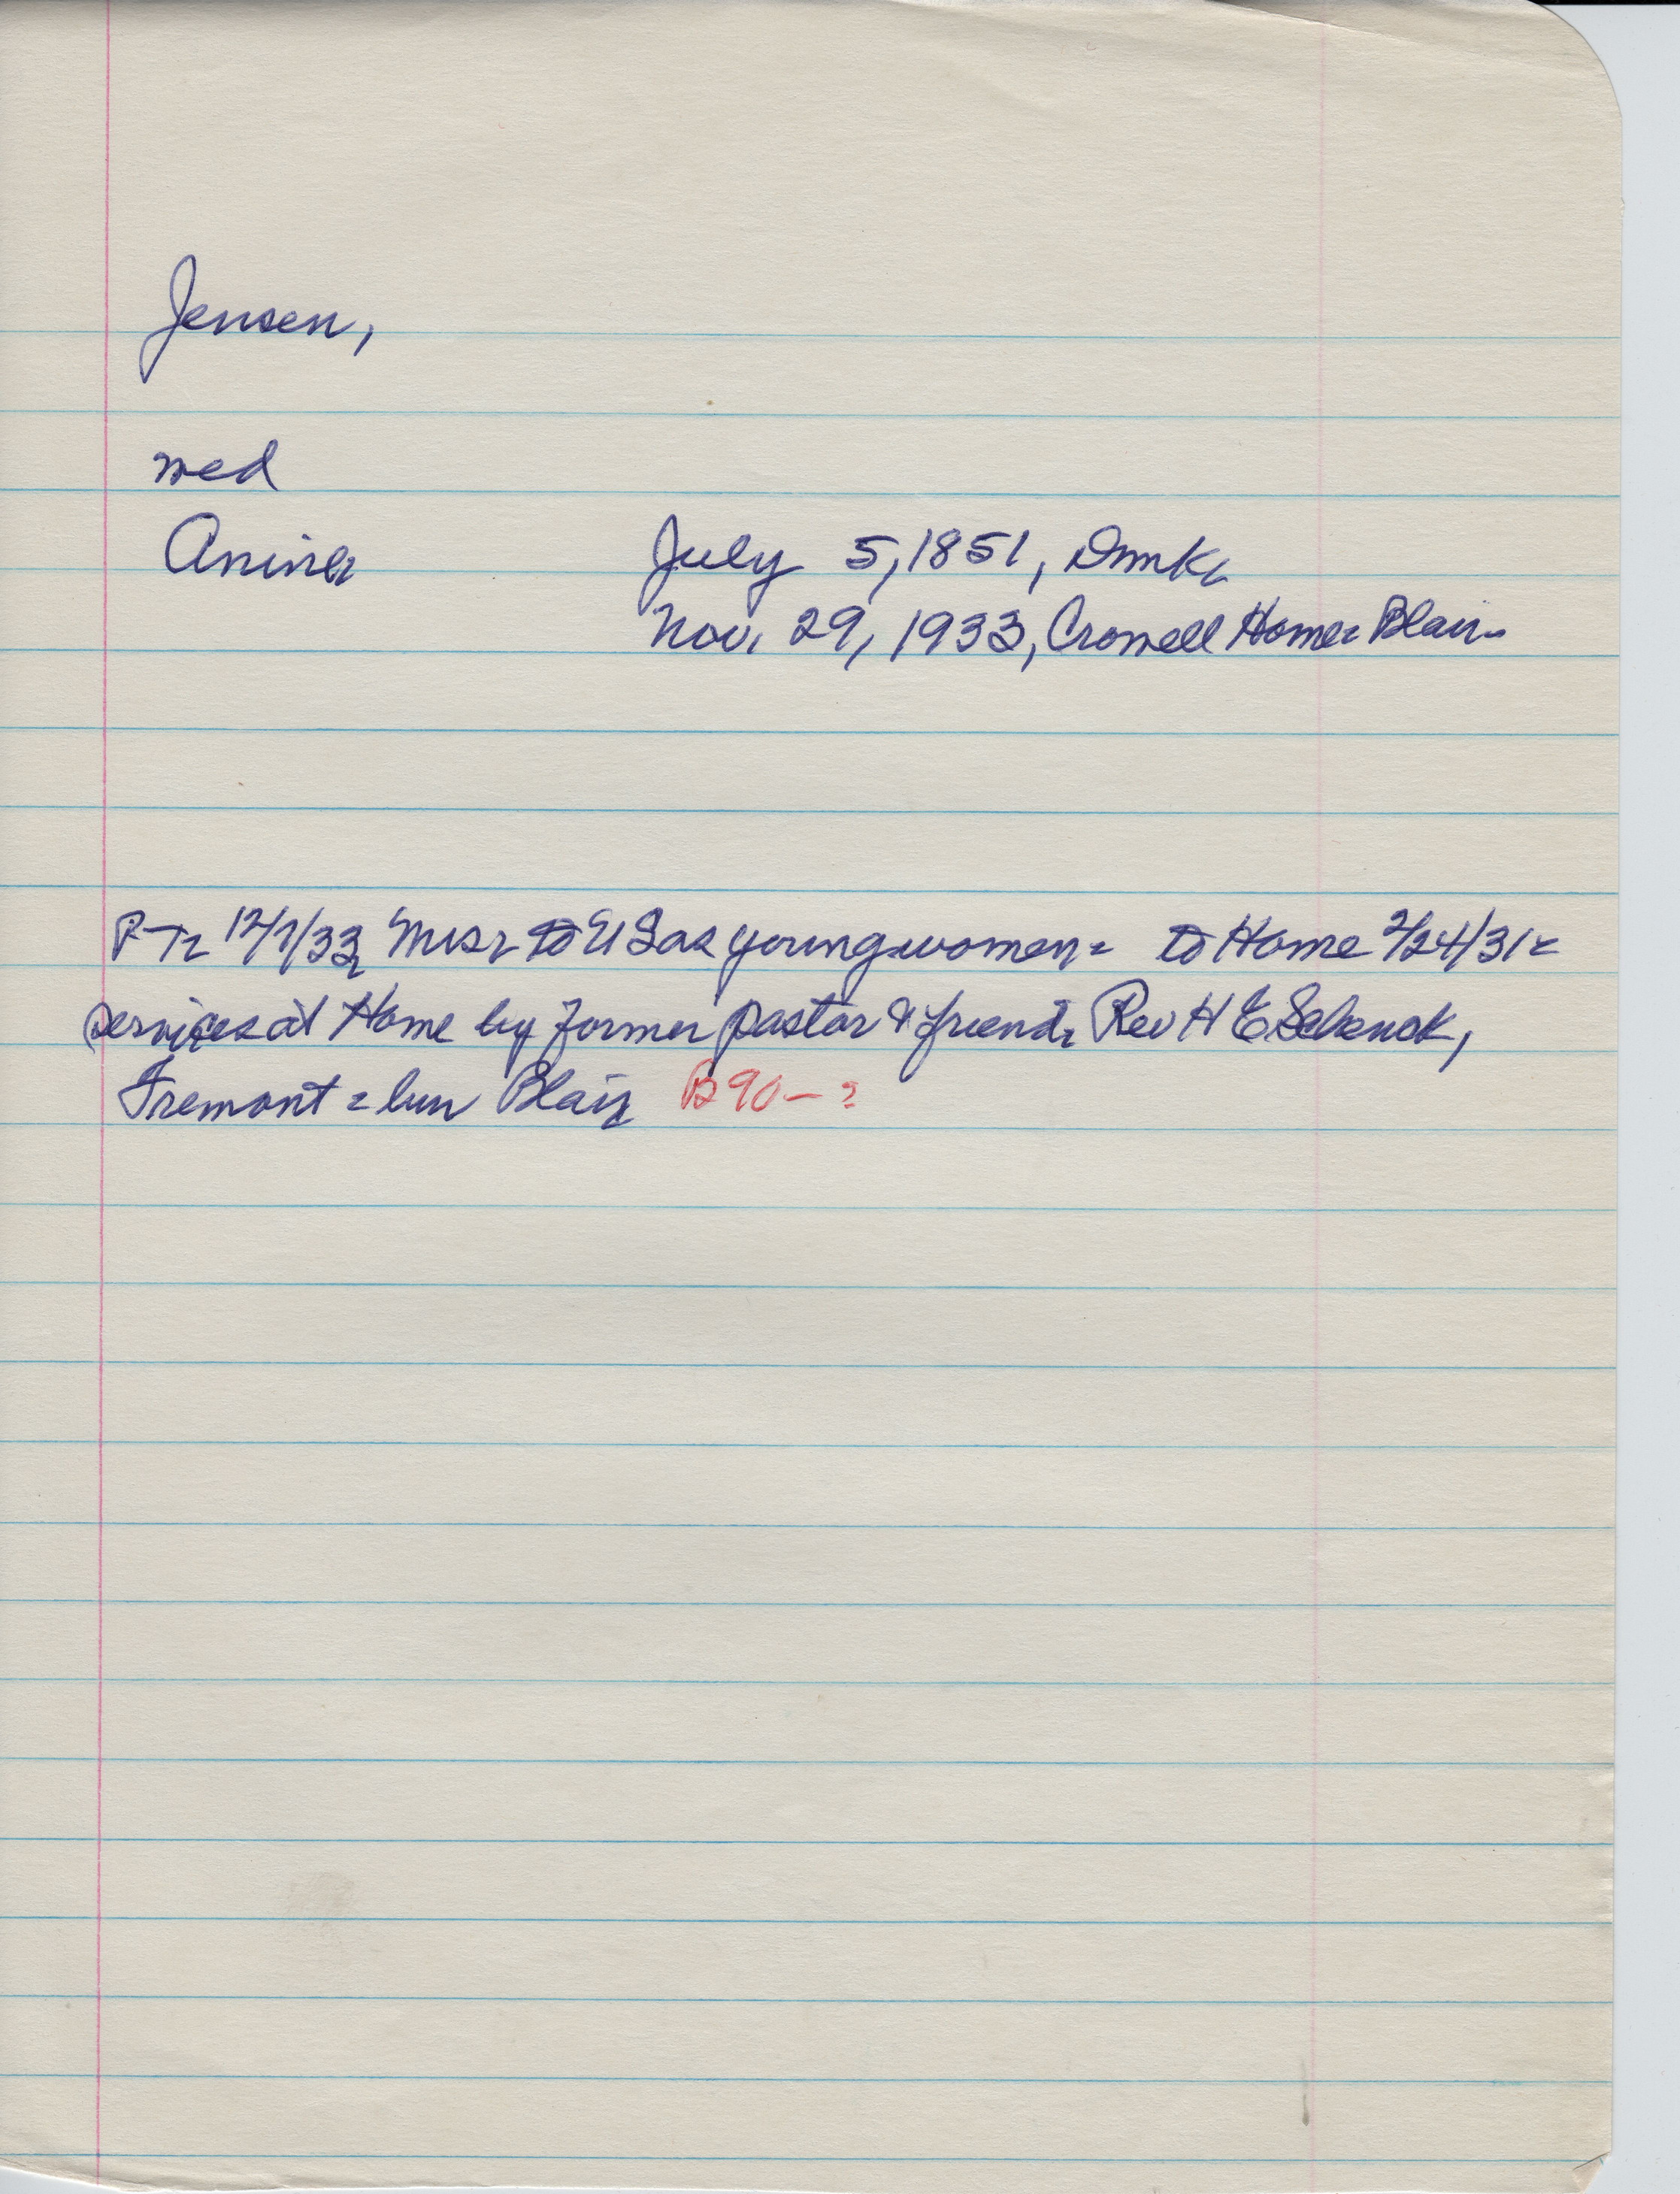 Jensen,
wed
Anina July 5, 1851, Dmk.
Nov. 29, 1933, Crowell Home, Blair.
P-T, 12/7/33, Mrs, to US as young woman, to Home 2/24/31,
services at Home by former pastor & friend, Rev H E Schenck,
Fremont, bur Blair B 90 - ?